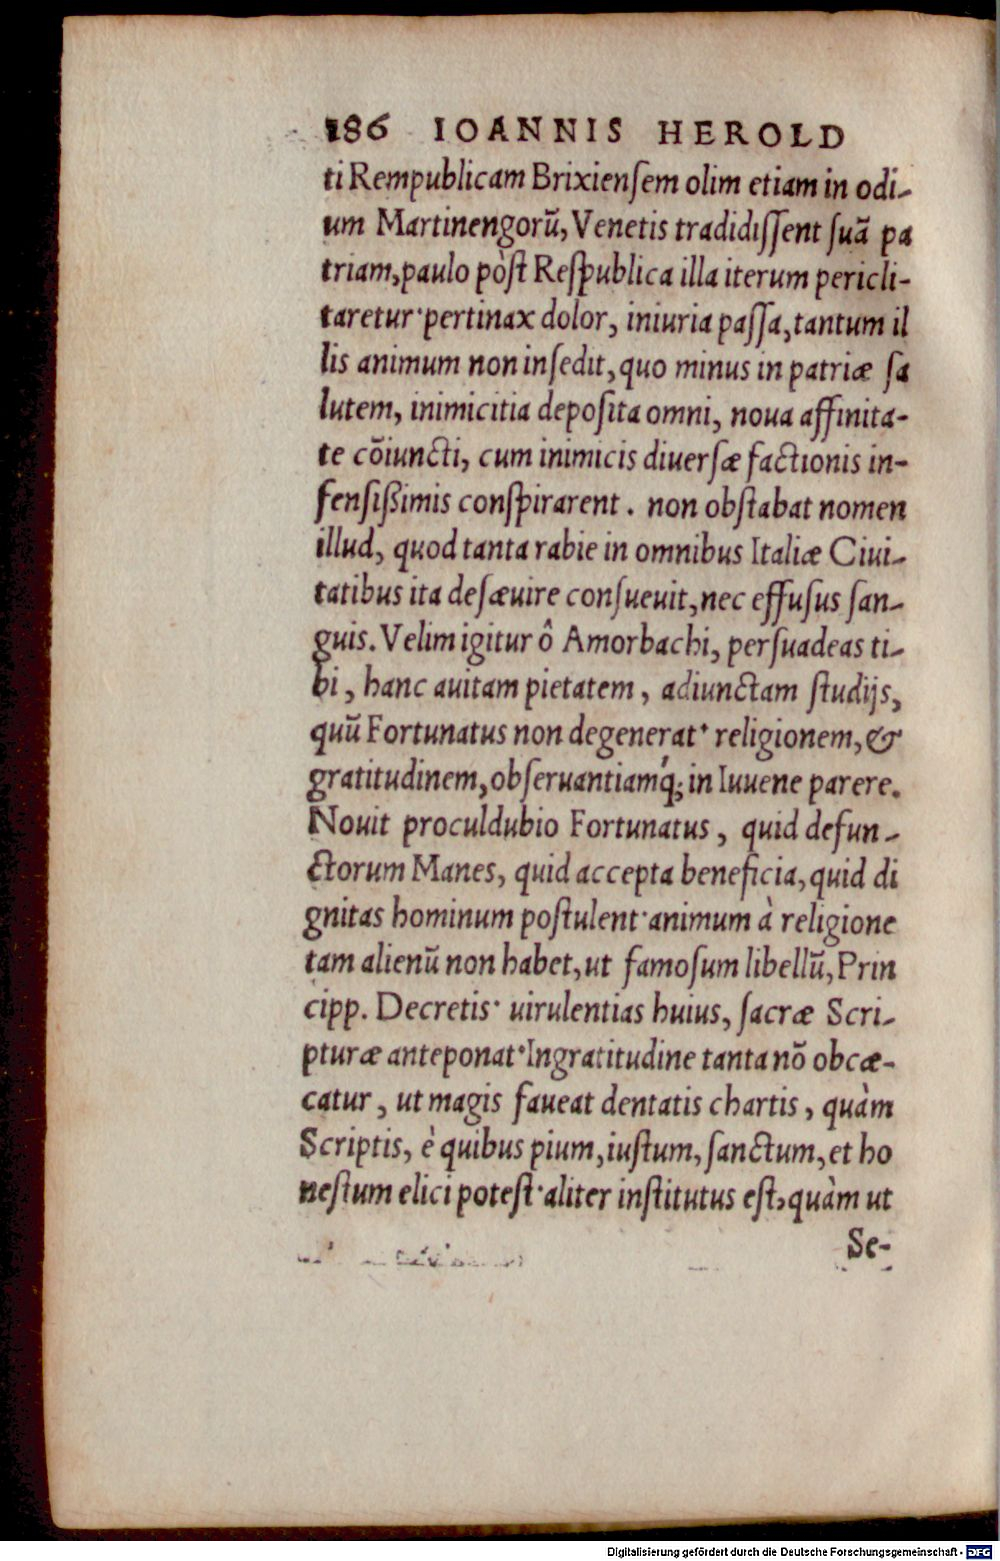 186 IOANNIS HEROLD
ti Rempublicam Brixienſem olim etiam in odi-
um Martinengorũ, Venetis tradidiſſent ſuã pa
triam, paulo pòſt Reſpublica illa iterum pericli-
taretur· pertinax dolor, iniuria paſſa, tantum il
lis animum non inſedit, quo minus in patriæ ſa
lutem, inimicitia depoſita omni, noua affinita-
te cõiuncti, cum inimicis diuerſæ factionis in-
fenſißimis conſpirarent. non obſtabat nomen
illud, quod tanta rabie in omnibus Italiæ Ciui-
tatibus ita deſæuire conſueuit, nec effuſus ſan-
guis. Velim igitur ô Amorbachi, perſuadeas ti-
bi, hanc auitam pietatem, adiunctam ſtudijs,
quũ Fortunatus non degenerat· religionem, &
gratitudinem, obſeruantiamq́; in Iuuene parere.
Nouit proculdubio Fortunatus, quid defun-
ctorum Manes, quid accepta beneficia, quid di
gnitas hominum poſtulent· animum à religione
tam alienũ non habet, ut famoſum libellũ, Prin
cipp. Decretis· uirulentias huius, ſacræ Scri-
pturæ anteponat· Ingratitudine tanta nõ obcæ-
catur, ut magis faueat dentatis chartis, quàm
Scriptis, è quibus pium, iuſtum, ſanctum, et ho
neſtum elici poteſt· aliter inſtitutus eſt, quàm ut
Se-
Digitalisierung gefördert durch die Deutsche Forschungsgemeinschaft - DFG